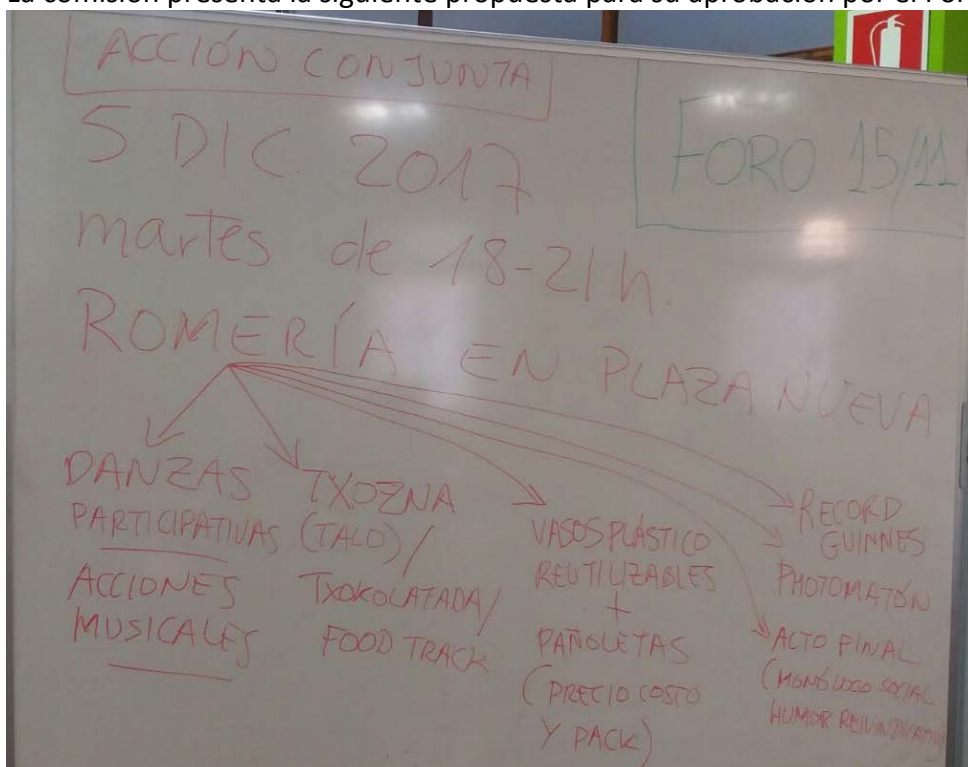 La comisión presenta la siguiente propuesta para su aprobación por el
ACCIÓN CONJUNTA
FORO 15/11
5 DIC. 2017
martes de 18-21 h.
ROMERÍA EN PLAZA NUEVA
DANZAS
PARTICIPATIVAS
ACCIONES
MUSICALES
TXOZNA
(TALO) /
TXOKOLATADA /
FOOD TRACK
VASOS PLÁSTICO
REUTILIZABLES
+
PAÑOLETAS
(PRECIO COSTO
Y PACK)
RECORD
GUINNES
PHOTOMATÓN
ACTO FINAL
(MONÓLOGO SOCIAL
HUMOR REIVINDICATIVO